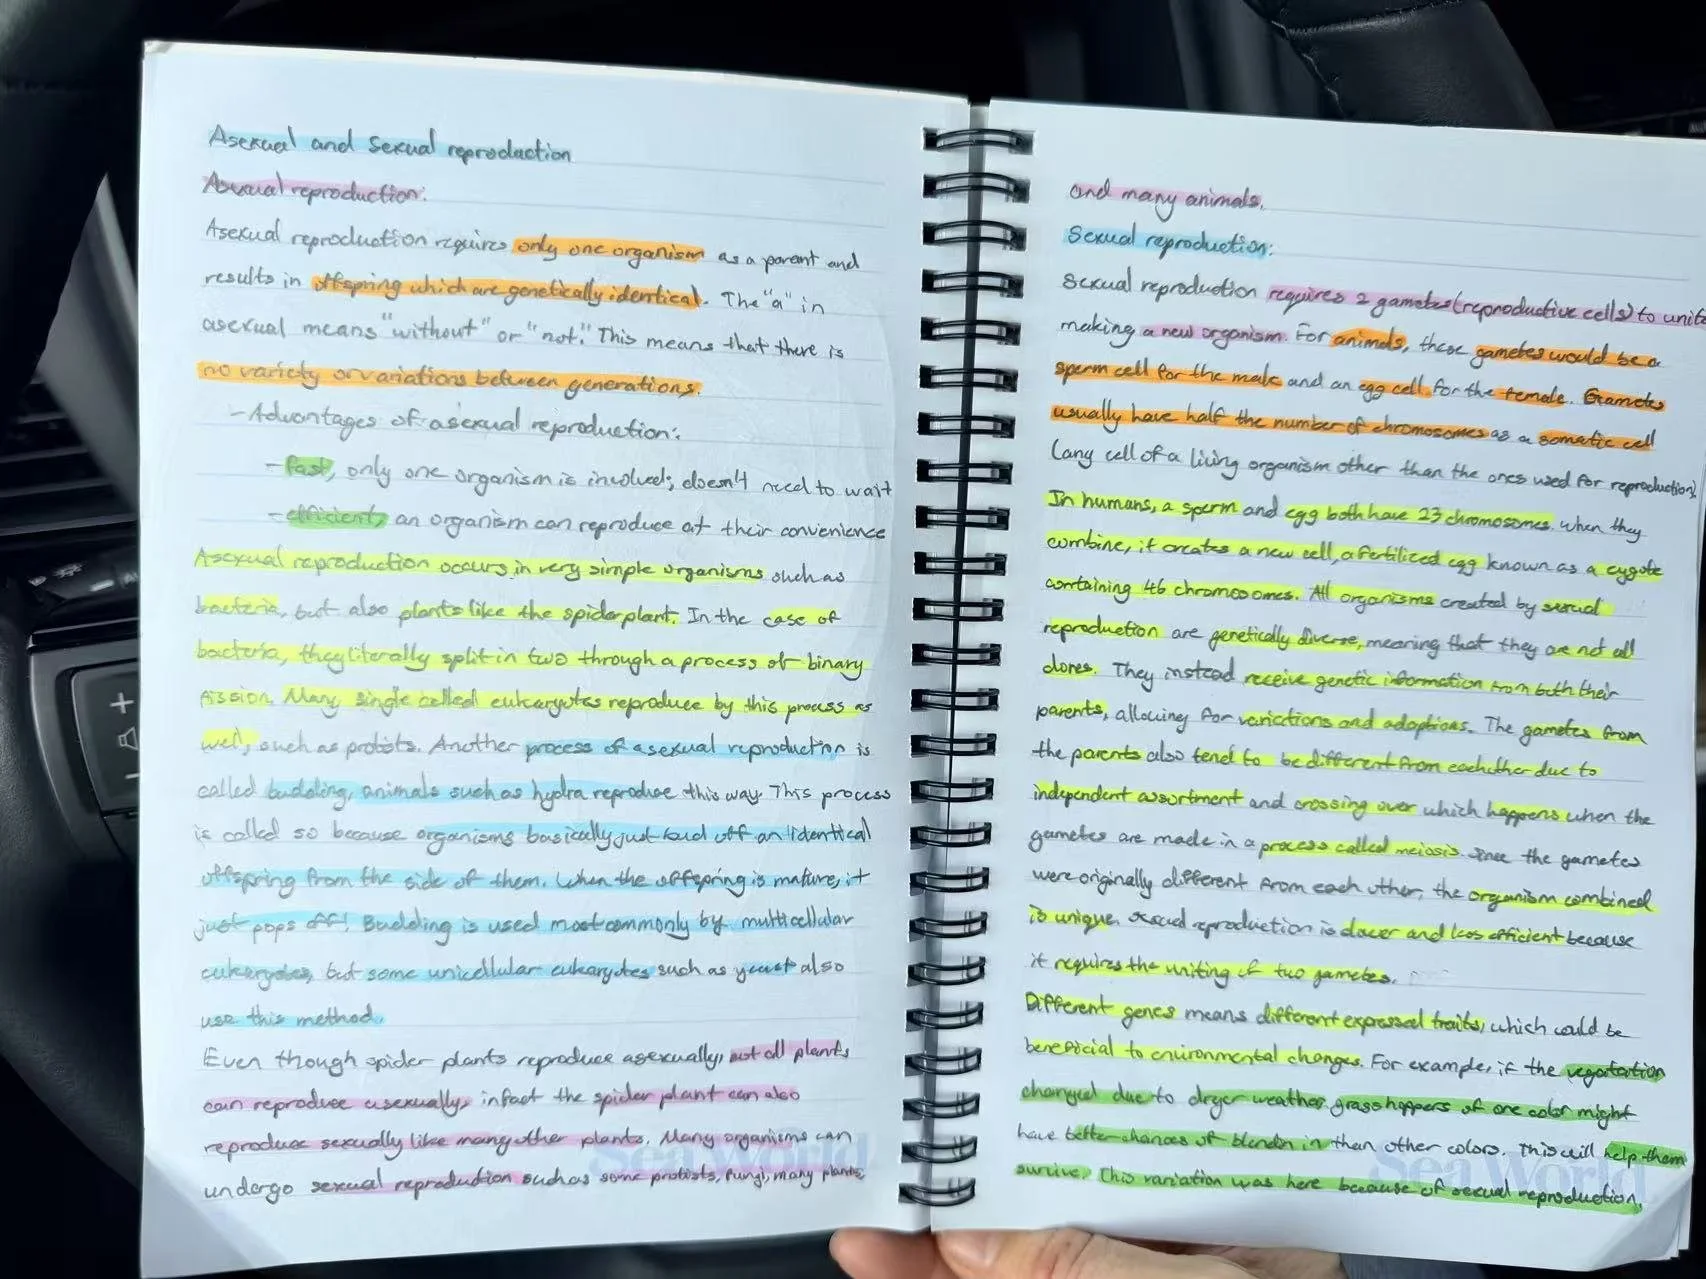 Asexual and Sexual reproduction
Asexual reproduction:
Asexual reproduction requires only one organism as a parent and
results in offspring which are genetically identical. The "a" in
asexual means "without" or "not." This means that there is
no variety or variations between generations.
- Advantages of asexual reproduction:
- fast, only one organism is involved; doesn't need to wait
- efficient, an organism can reproduce at their convenience
Asexual reproduction occurs in very simple organisms such as
bacteria, but also plants like the spider plant. In the case of
bacteria, they literally split in two through a process of binary
fission. Many single celled eukaryotes reproduce by this process as
well, such as protists. Another process of asexual reproduction is
called budding, animals such as hydra reproduce this way. This process
is called so because organisms basically just bud off an identical
offspring from the side of them. When the offspring is mature, it
just pops off! Budding is used most commonly by multicellular
eukaryotes, but some unicellular eukaryotes such as yeast also
use this method.
Even though spider plants reproduce asexually, not all plants
can reproduce asexually, infact the spider plant can also
reproduce sexually like many other plants. Many organisms can
undergo sexual reproduction such as some protists, fungi, many plants,
Sea World
and many animals.
Sexual reproduction:
Sexual reproduction requires 2 gametes (reproductive cells) to unite
making a new organism. For animals, these gametes would be a
sperm cell for the male and an egg cell for the female. Gametes
usually have half the number of chromosomes as a somatic cell
(any cell of a living organism other than the ones used for reproduction).
In humans, a sperm and egg both have 23 chromosomes. When they
combine, it creates a new cell, a fertilized egg known as a zygote
containing 46 chromosomes. All organisms created by sexual
reproduction are genetically diverse, meaning that they are not all
clones. They instead receive genetic information from both their
parents, allowing for variations and adaptions. The gametes from
the parents also tend to be different from eachother due to
independent assortment and crossing over which happens when the
gametes are made in a process called meiosis. Since the gametes
were originally different from each other, the organism combined
is unique. Sexual reproduction is slower and less efficient because
it requires the uniting of two gametes.
Different genes means different expressed traits, which could be
beneficial to environmental changes. For example, if the vegatation
changed due to dryer weather, grasshoppers of one color might
have better chances of blendin in than other colors. This will help them
survive. This variation was here because of sexual reproduction.
Sea World